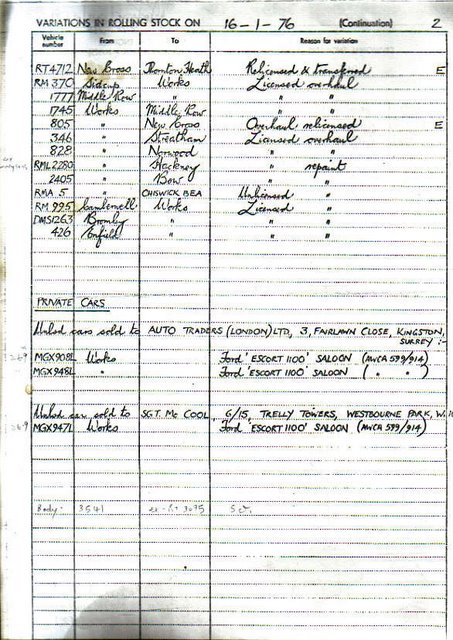 VARIATIONS IN ROLLING STOCK ON 16-1-76 (Continuation) 2
Vehicle number From To Reason for variation
RT4712 New Cross Thornton Heath Relicensed & transferred E
RM 370 Sidcup Works Licensed overhaul
1777 Middle Row " " "
1745 Works Middle Row " "
805 " New Cross Overhaul relicensed E
346 " Streatham Licensed overhaul
828 " Norwood " "
RML2280 " Hackney " repaint
2405 " Bow " "
RMA 5 " CHISWICK BEA Unlicensed "
RM 995 Camberwell Works Licensed "
DMS1263 Bromley " " "
426 Enfield " " "
PRIVATE CARS
cars sold to AUTO TRADERS (LONDON) LTD, 3, FAIRLAWN CLOSE, KINGSTON,
SURREY :-
MGX908L Works Ford 'ESCORT 1100' SALOON (AWCA 599/914)
MGX948L " Ford 'ESCORT 1100' SALOON ( " " )
car sold to SGT. Mc COOL, 6/15, TRELLY TOWERS, WESTBOURNE PARK, W.
MGX947L Works Ford 'ESCORT 1100' SALOON (AWCA 599/914)
Body 3541